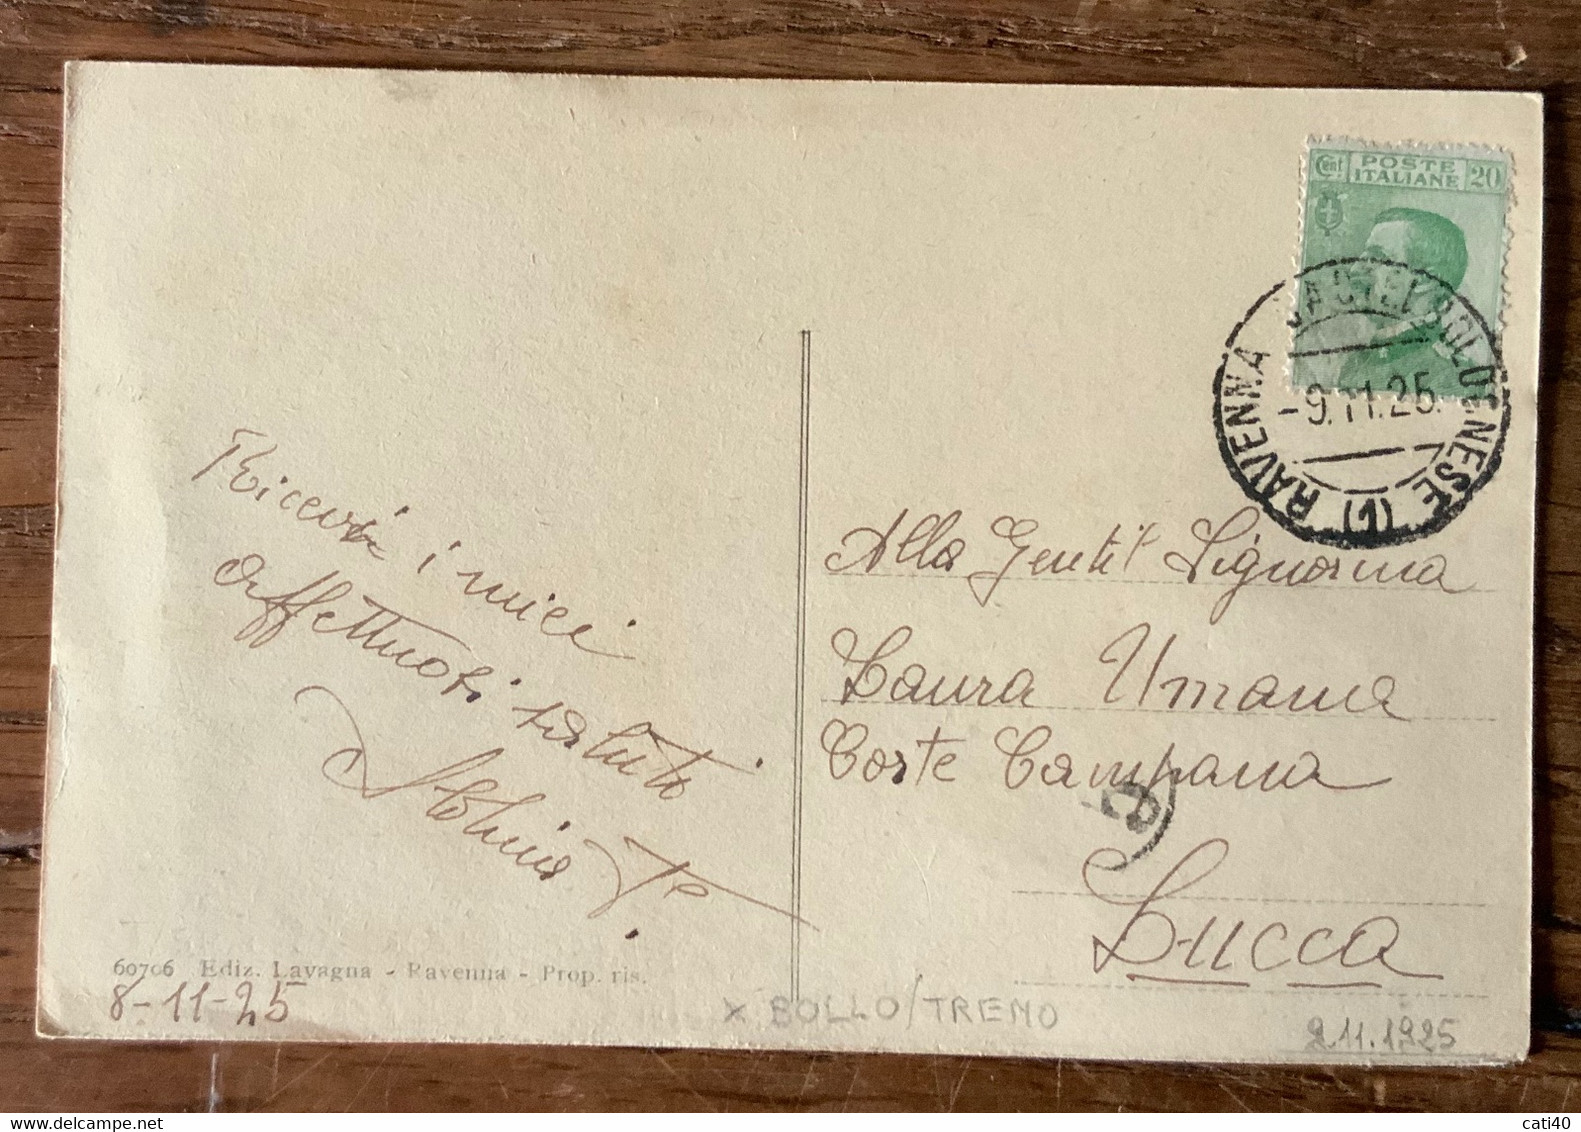 Cent POSTE ITALIANE 20
RAVENNA CASTELBOLOGNESE (1) RAVENNA
-9.11.25.
Ricevi i miei
affettuosi saluti
Alla Gentil Signorina
Laura Umana
Corte Campana
Lucca
60706 Ediz. Lavagna - Ravenna - Prop. ris.
8-11-25
x BOLLO/TRENO
9.11.1925
cati40